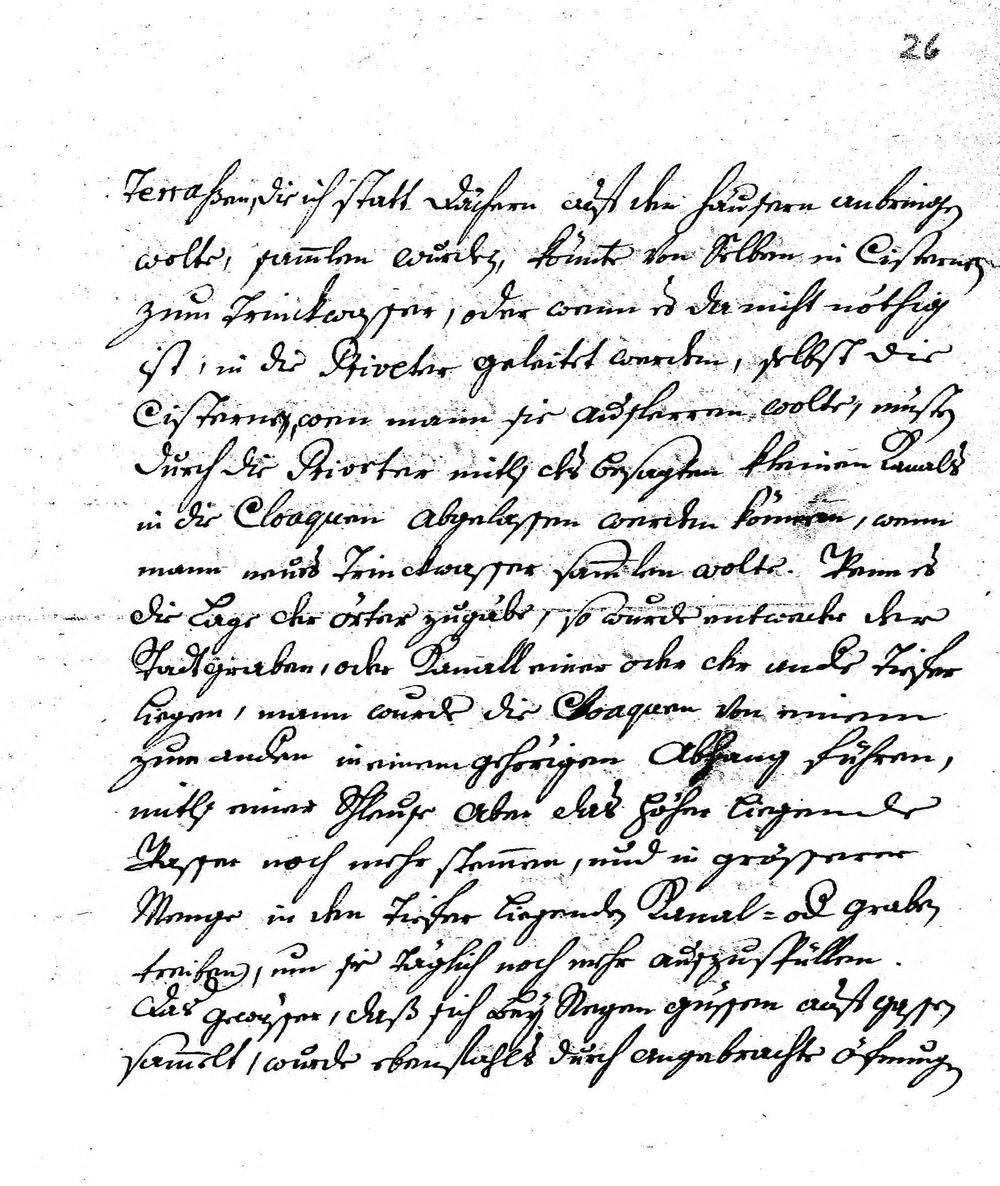 26
Terraßen, die ich statt Dächern auf den Häusern anbringen
wolte, samlen wurden, könnte von Selben in Cisternen
zum Trinckwasser, oder wenn es da nicht nöthig
ist, in die Priveter geleitet werden, selbst die
Cisternen, wen mann sie ausleeren wolte, müsten
durch die Priveter mitls des besagten kleinen Kanals
in die Cloaquen abgelassen werden können, wenn
mann neues Trinckwasser samlen wolte. Wenn es
die Lage der örter zugäbe, so wurde entweder der
Stadtgraben, oder Kanall einer oder der andere Tiefer
liegen, mann wurde die Cloaquen von einem
zum anden in einem gehörigen Abhang führen,
mitls einer Schleuse aber das höher liegende
Wasser noch mehr stemen, und in grösserer
Menge in den Tiefer liegenden Kanal = od graben
treiben, um sie täglich noch mehr auszuspüllen.
Das gewässer, daß sich bey Regen güssen auf gassen
samelt, wurde ebenfahls durch angebrachte öfnungen